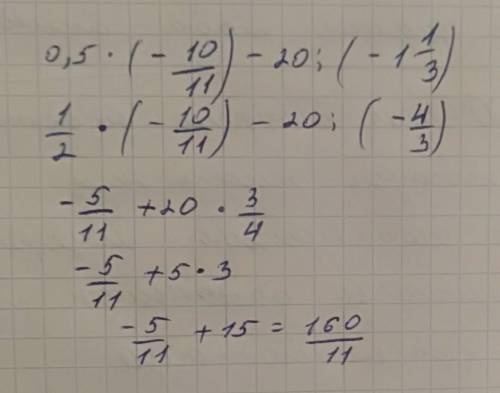 0,5 · (- 10/11) - 20 : (- 1 1/3)
1/2 · (- 10/11) - 20 : (- 4/3)
- 5/11 + 20 · 3/4
- 5/11 + 5 · 3
- 5/11 + 15 = 160/11